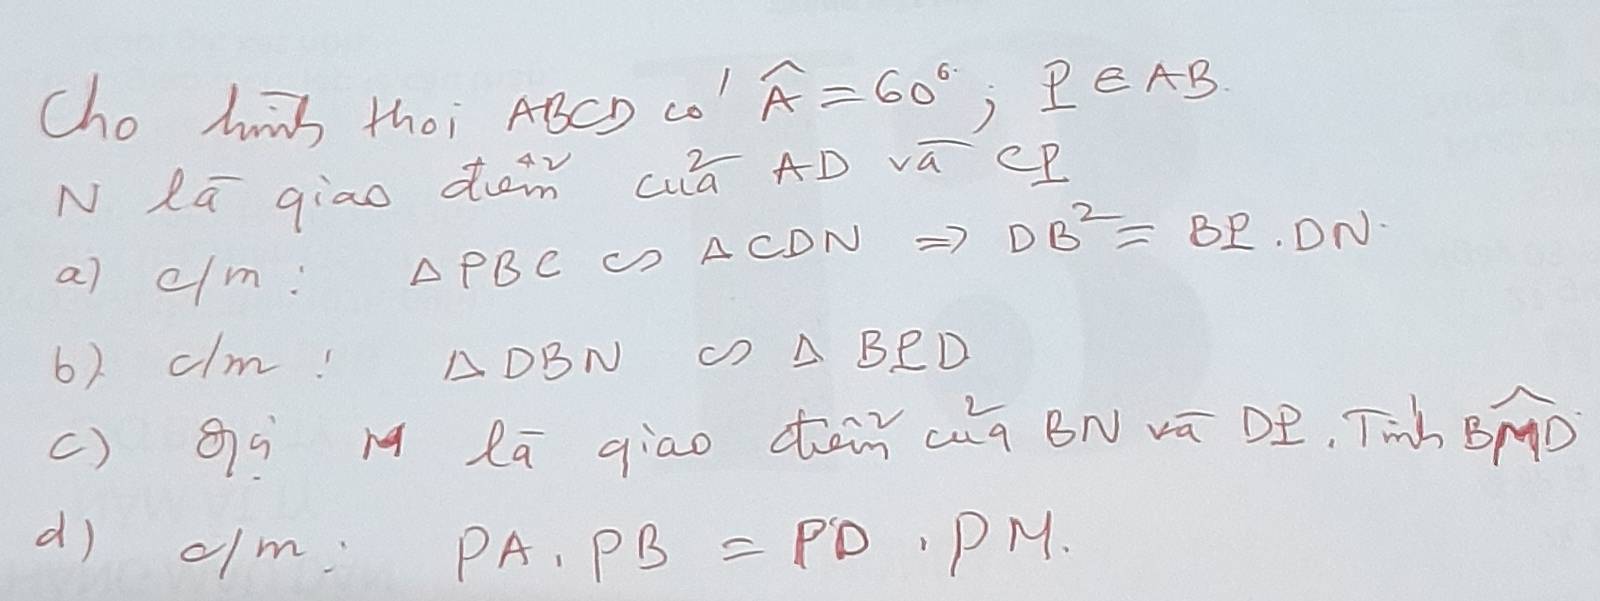 Cho hình thoi ABCD có Â = 60°; P ∈ AB.
N là giao điểm của AD và CP
a) c/m: △PBC ∽ △CDN ⇒ DB² = BP.DN.
b) c/m: △DBN ∽ △BPD
c) Gọi M là giao điểm của BN và DP. Tính BM̂D
d) c/m: PA.PB = PD.PM.